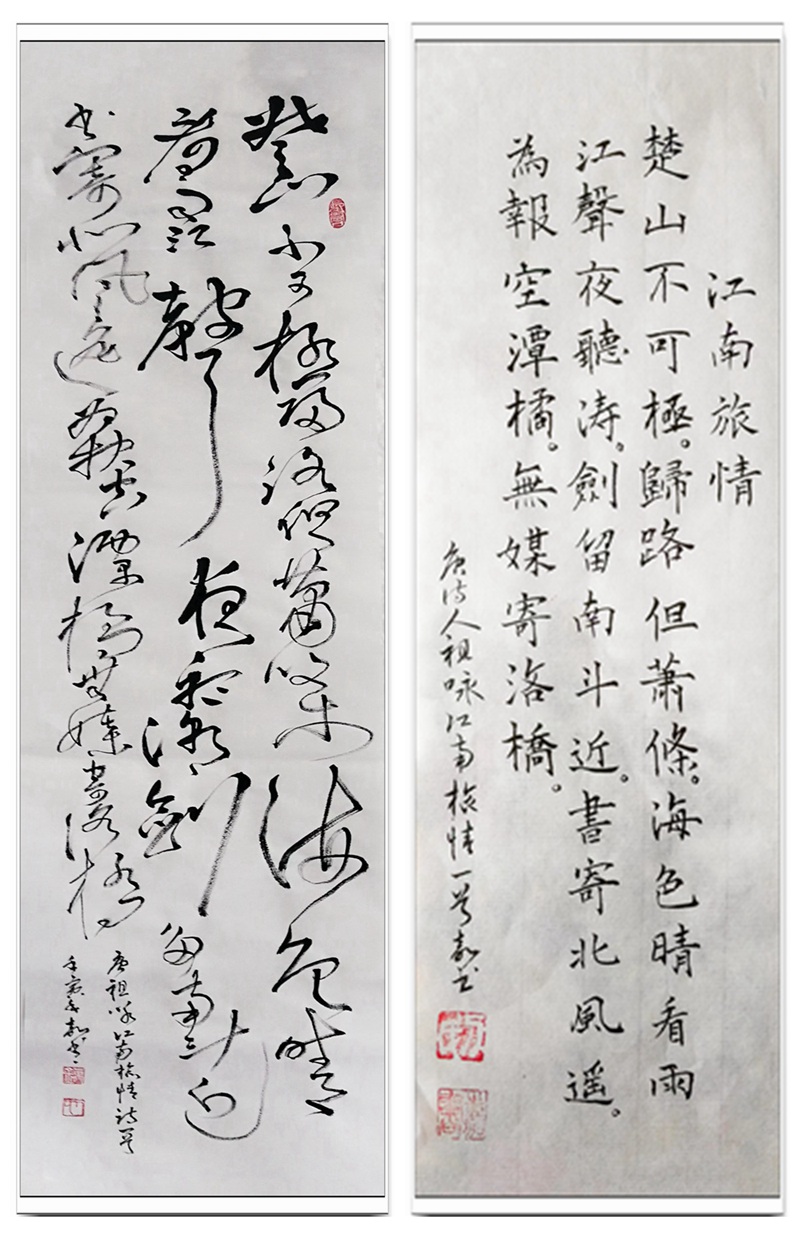 江南旅情
楚山不可極。歸路但蕭條。海色晴看雨
江聲夜聽涛。劍留南斗近。書寄北風遥。
為報空潭橘。無媒寄洛橋。
唐诗人祖咏江南旅情一首
楚山不可極歸路但蕭條海色晴
看雨江聲夜聽潮劍留南斗近
书寄北風遥為報空潭橘無媒寄洛橋
唐祖咏江南旅情詩一首
壬寅年